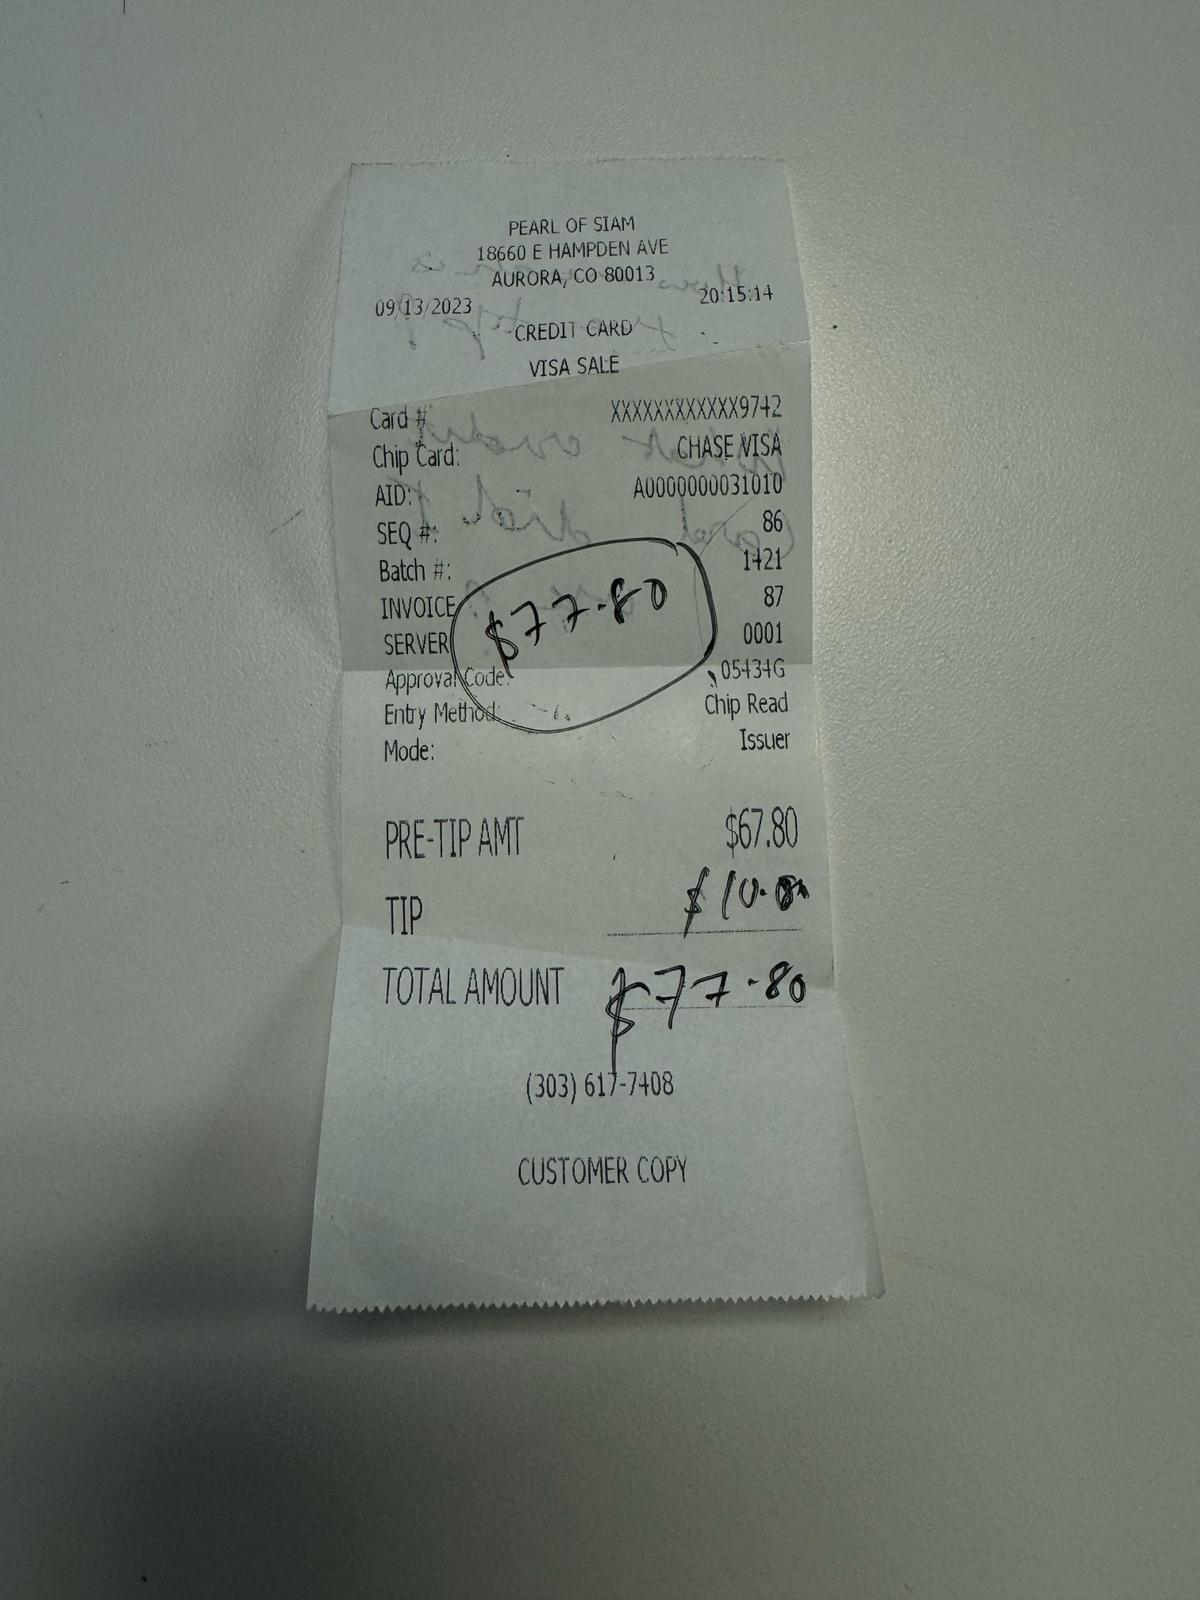 PEARL OF SIAM
18660 E HAMPDEN AVE
AURORA, CO 80013
09/13/2023 20:15:14
CREDIT CARD
VISA SALE
Card # XXXXXXXXXXXX9742
Chip Card: CHASE VISA
AID: A0000000031010
SEQ #: 86
Batch #: 1421
INVOICE 87
SERVER 0001
$77.80
Approval Code: 05434G
Entry Method: Chip Read
Mode: Issuer
PRE-TIP AMT $67.80
TIP $10.00
TOTAL AMOUNT $77.80
(303) 617-7408
CUSTOMER COPY